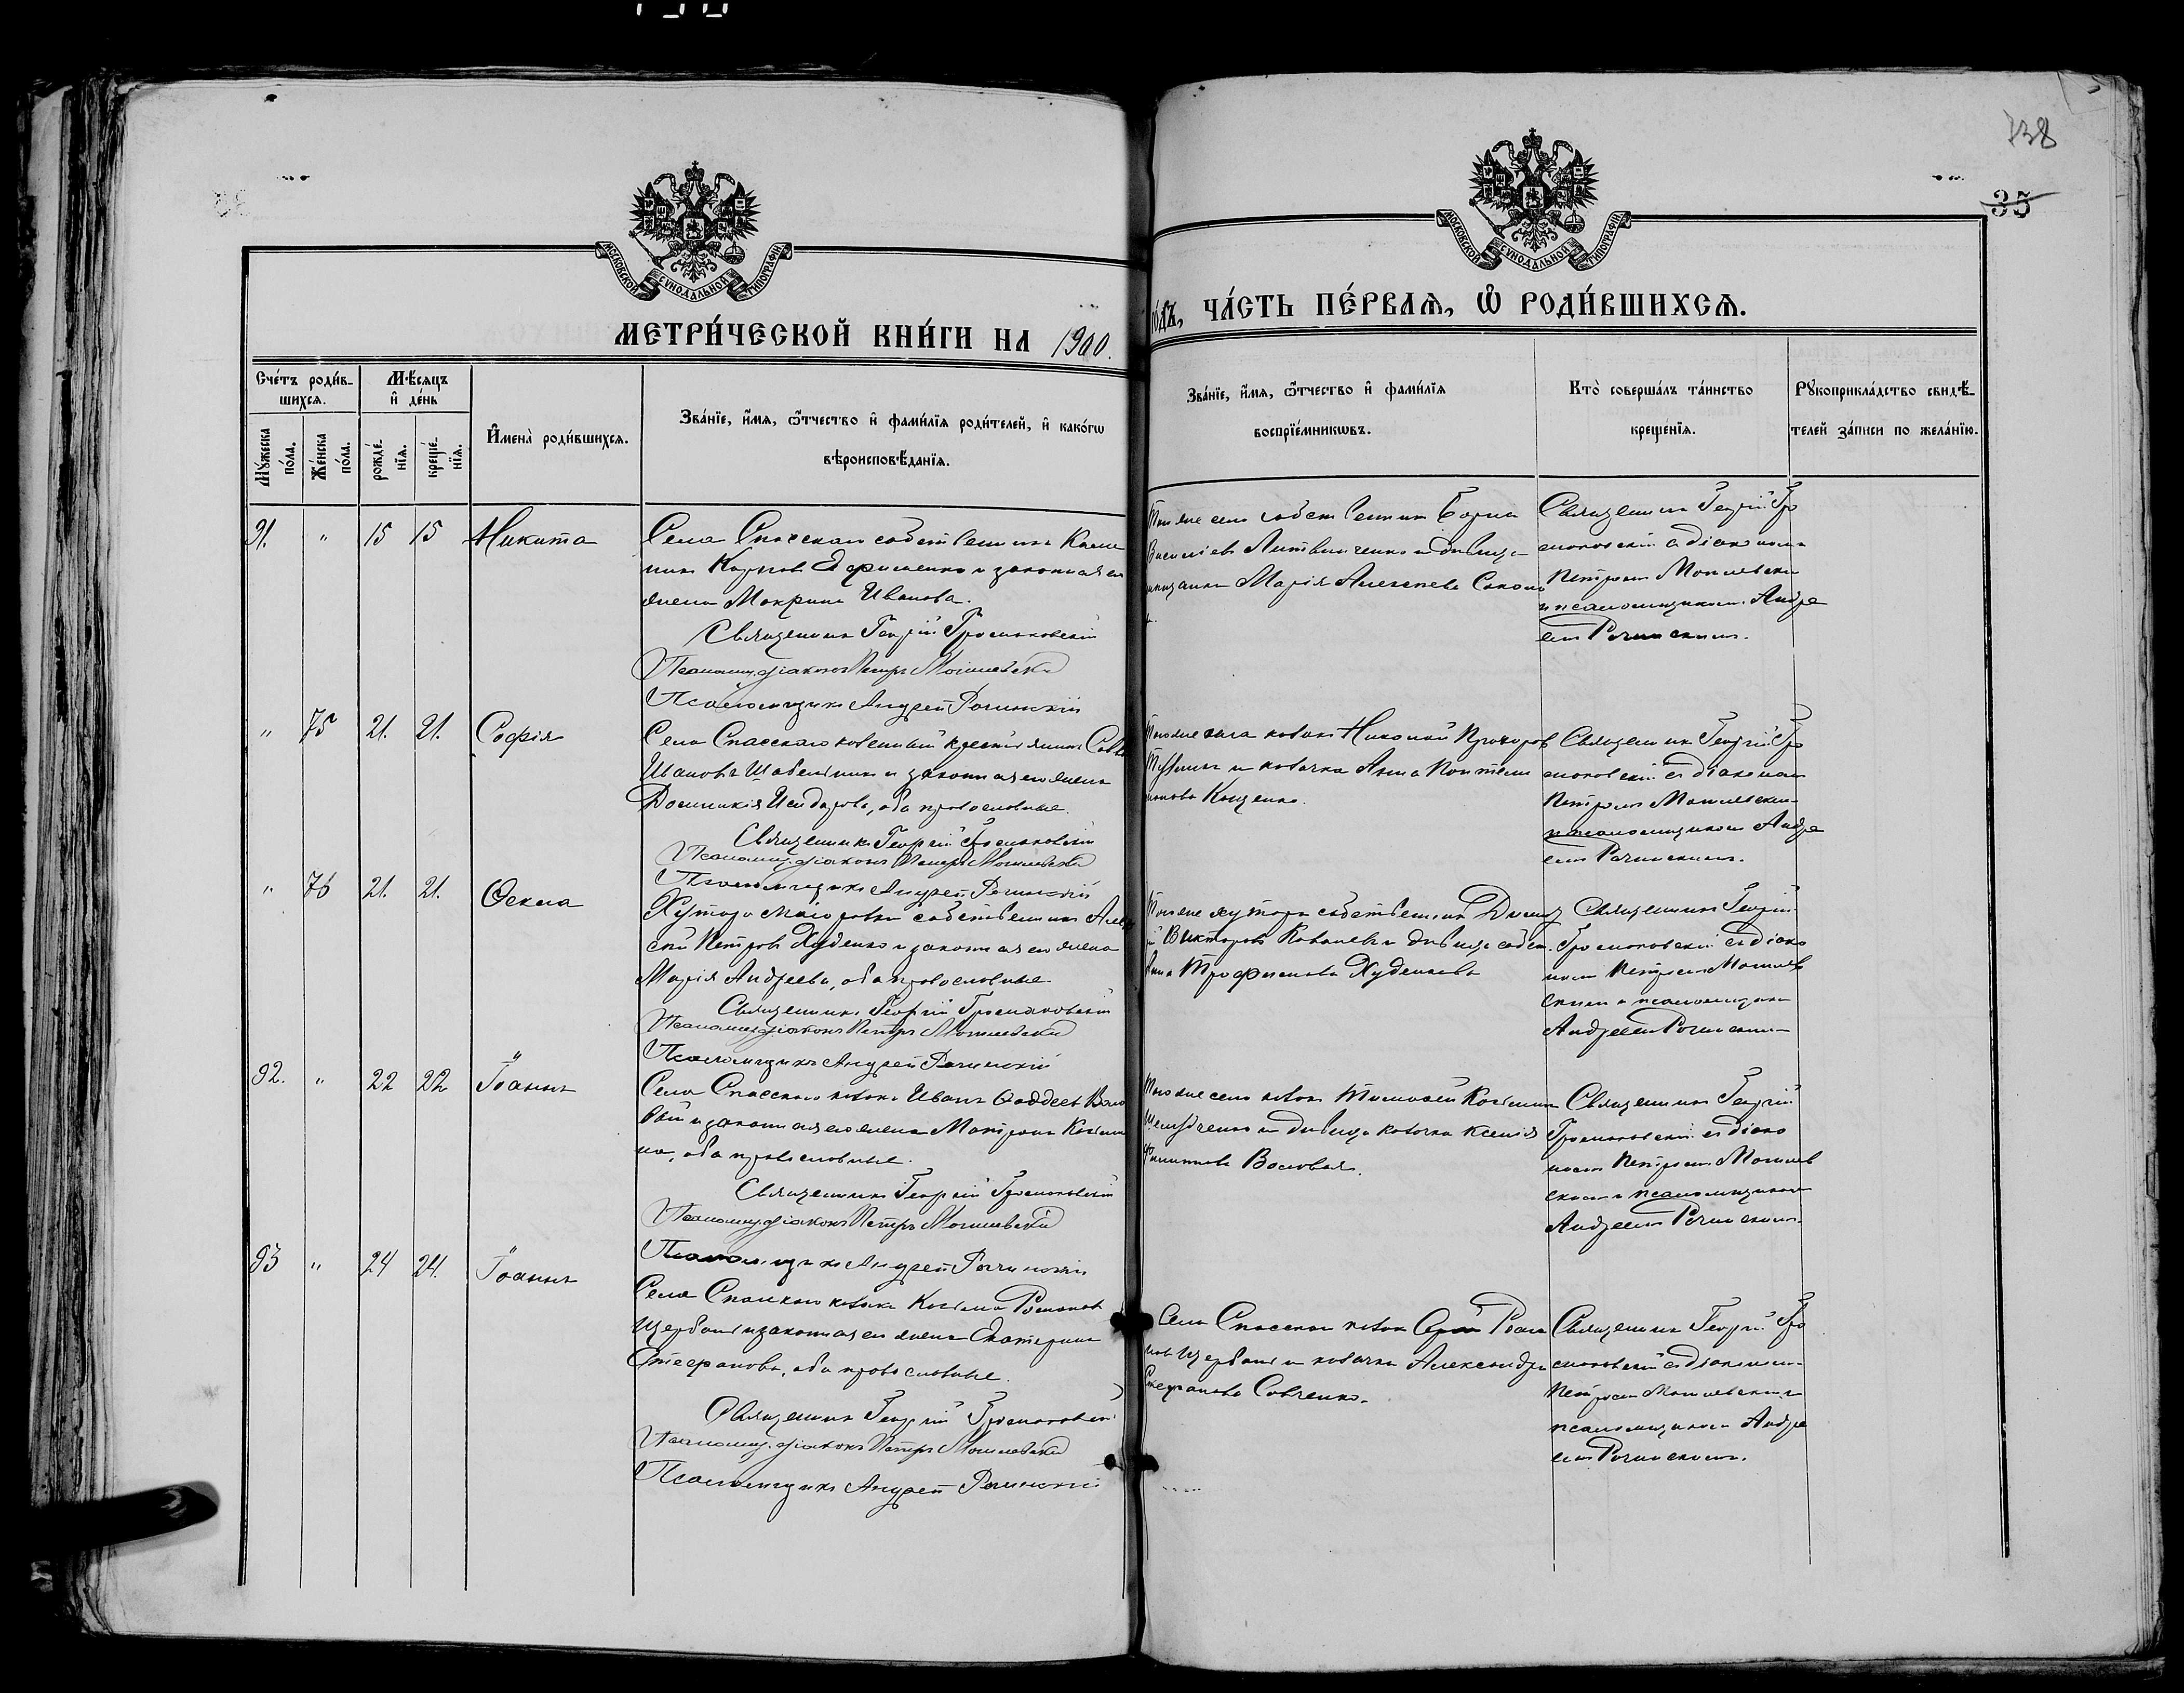 738
35
МОСКОВСКОЙ СУНОДАЛЬНОЙ ТИПОГРАФІИ
МОСКОВСКОЙ СУНОДАЛЬНОЙ ТИПОГРАФІИ
МЕТРИ́ЧЕСКОЙ КНИ́ГИ НА 1900.
ЧА́СТЬ ПЕ́РВАѦ, Ѡ҆ РОДИ́ВШИХСѦ.
Сче́тъ роди́в-
шихсѧ.
Мꙋ́жеска по́ла.
Же́нска по́ла.
Мѣ́сѧцъ и҆ де́нь
рожде́-нїѧ.
креще́-нїѧ.
И҆мена̀ роди́вшихсѧ.
Зва́нїе, и҆́мѧ, ѻ҆́тчество и҆ фами́лїѧ роди́телей, и҆ како́гѡ
вѣроисповѣ́данїѧ.
Зва́нїе, и҆́мѧ, ѻ҆́тчество и҆ фами́лїѧ
воспрїе́мникѡвъ.
Кто̀ соверша́лъ та́инство
креще́нїѧ.
Рꙋкоприкла́дство свидѣ́-
телей за́писи по жела́нїю.
91. " 15 15 Никита
Села Спасскаго собственникъ
Карповъ Ефименко и законная его
жена Макрина Иванова.
Священникъ Георгій Громаковскій
Псаломщ. діаконъ Петръ Могилевскій
Псаломщикъ Андрей Рачинскій
Того же села собственникъ
Василіевъ Литвиненко и дѣвица
Марія Алексѣева
Священникъ Георгій Гро
маковскій съ діакономъ
Петромъ Могилевским
и псаломщикомъ Андре
емъ Рачинскимъ.
" 75 21. 21. Софія
Села Спасскаго крестьянинъ Савва
Ивановъ Шабельникъ и законная его жена
Домникія Исидорова, оба православные.
Священникъ Георгій Громаковскій
Псаломщ. діаконъ Петръ Могилевскій
Псаломщикъ Андрей Рачинскій
Того же села козакъ Николай Прохоровъ
и козачка Анна Пантелеи
монова
Священникъ Георгій Гро
маковскій съ діакономъ
Петромъ Могилевским
и псаломщикомъ Андре
емъ Рачинскимъ.
" 76 21. 21. Ѳекла
Хутора собственникъ Алек
сѣй Петровъ Худенко и законная его жена
Марія Андреева, оба православные.
Священникъ Георгій Громаковскій
Псаломщ. діаконъ Петръ Могилевскій
Псаломщикъ Андрей Рачинскій
Того же хутора собственникъ
Викторовъ и дѣвица собств.
Анна Трофимова Худенкова
Священникъ Георгій
Громаковскій съ діако
номъ Петромъ Могилев
скимъ и псаломщикомъ
Андреемъ Рачинскимъ
92. " 22 22 Іоаннъ
Села Спасскаго козакъ Иванъ Ѳаддеевъ Воло
вый и законная его жена Матрона Косьми
на, оба православные.
Священникъ Георгій Громаковскій
Псаломщ. діаконъ Петръ Могилевскій
Псаломщикъ Андрей Рачинскій
Того же села козакъ Тимофей Косьминъ
и дѣвица козачка Ксенія
Филиппова Воловая.
Священникъ Георгій
Громаковскій съ діако
номъ Петромъ Могилев
скимъ и псаломщикомъ
Андреемъ Рачинскимъ.
93 " 24 24. Іоаннъ
Села Спасскаго козакъ Косьма Романовъ
Щербань и законная его жена Екатерина
Стефанова, оба православные.
Священникъ Георгій Громаковскій
Псаломщ. діаконъ Петръ Могилевскій
Псаломщикъ Андрей Рачинскій
Села Спасскаго козакъ Рома
новъ Щербань и козачка Александра
Стефанова Савченко.
Священникъ Георгій Гро
маковскій съ діакономъ
Петромъ Могилевским и
псаломщикомъ Андре
емъ Рачинскимъ.